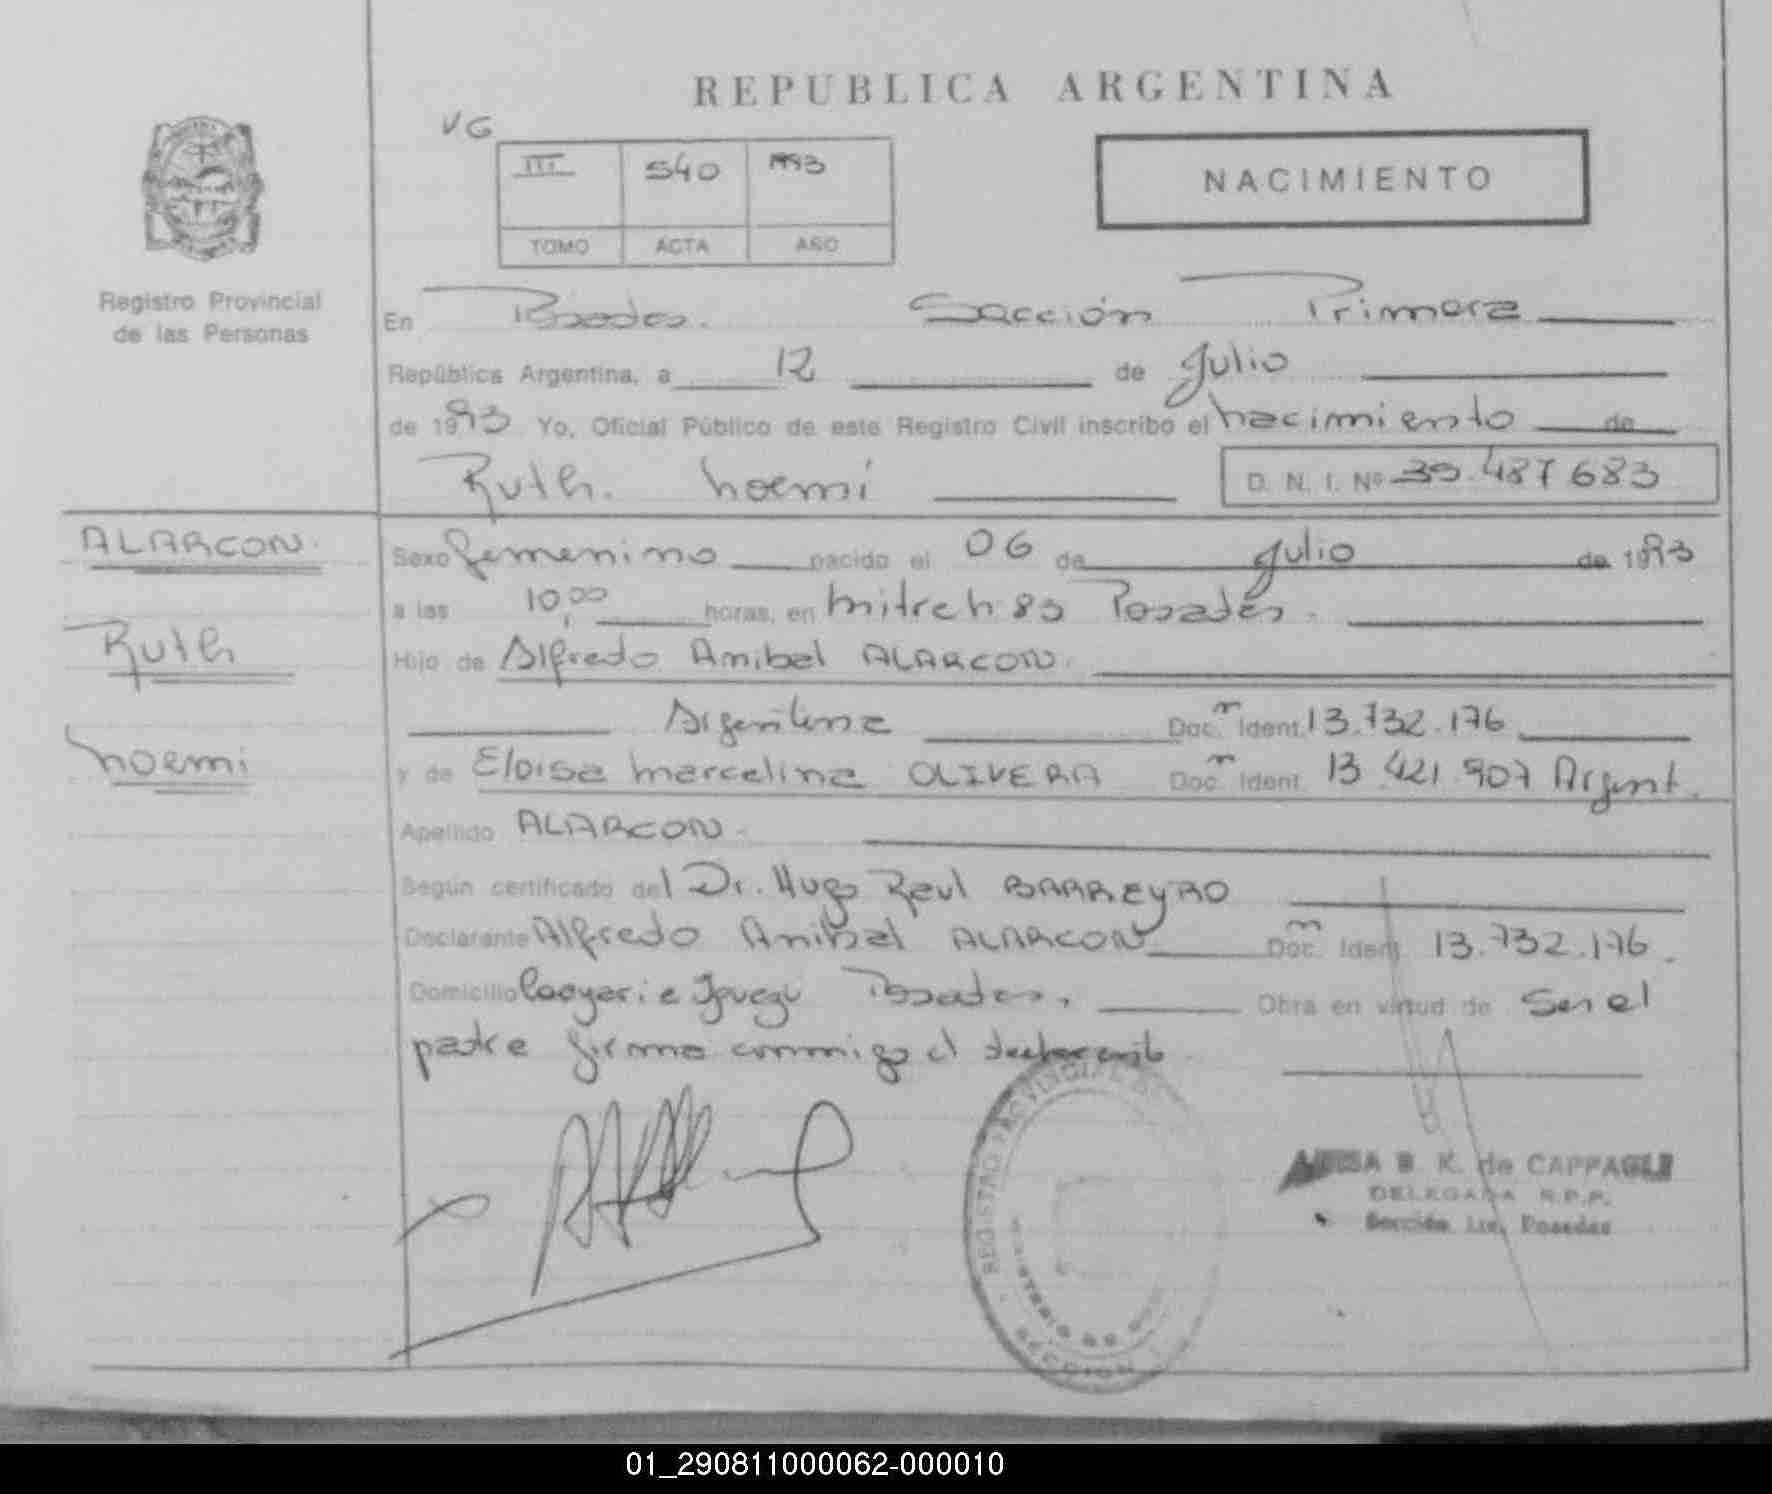 REPUBLICA ARGENTINA
VG
III 540 1993
TOMO ACTA AÑO
NACIMIENTO
Registro Provincial
de las Personas
En Posadas. Sección Primera
República Argentina, a 12 de Julio
de 1993 Yo, Oficial Público de este Registro Civil inscribo el nacimiento de
Ruth. Noemi D. N. I. Nº 39.487683
ALARCON.
Ruth
Noemi
Sexo femenino nacido el 06 de Julio de 1993
a las 10,00 horas, en Mitre N: 83 Posadas.
Hijo de Alfredo Anibal ALARCON.
Argentina Doc. Ident. 13.732.176
y de Eloisa Marcelina OLIVERA Doc. Ident. 13.421.907 Argent.
Apellido ALARCON.
Según certificado del Dr. Hugo Raul BARREYRO
Declarante Alfredo Anibal ALARCON Doc. Ident. 13.732.176.
Domicilio e Posadas. Obra en virtud de Ser el
padre firma conmigo el declarante
REGISTRO PROVINCIAL DE
MINISTERIO DE
SECCION
B. K. de CAPPAGLI
DELEGADA R.P.P.
Sección 1ra. Posadas
01_290811000062-000010